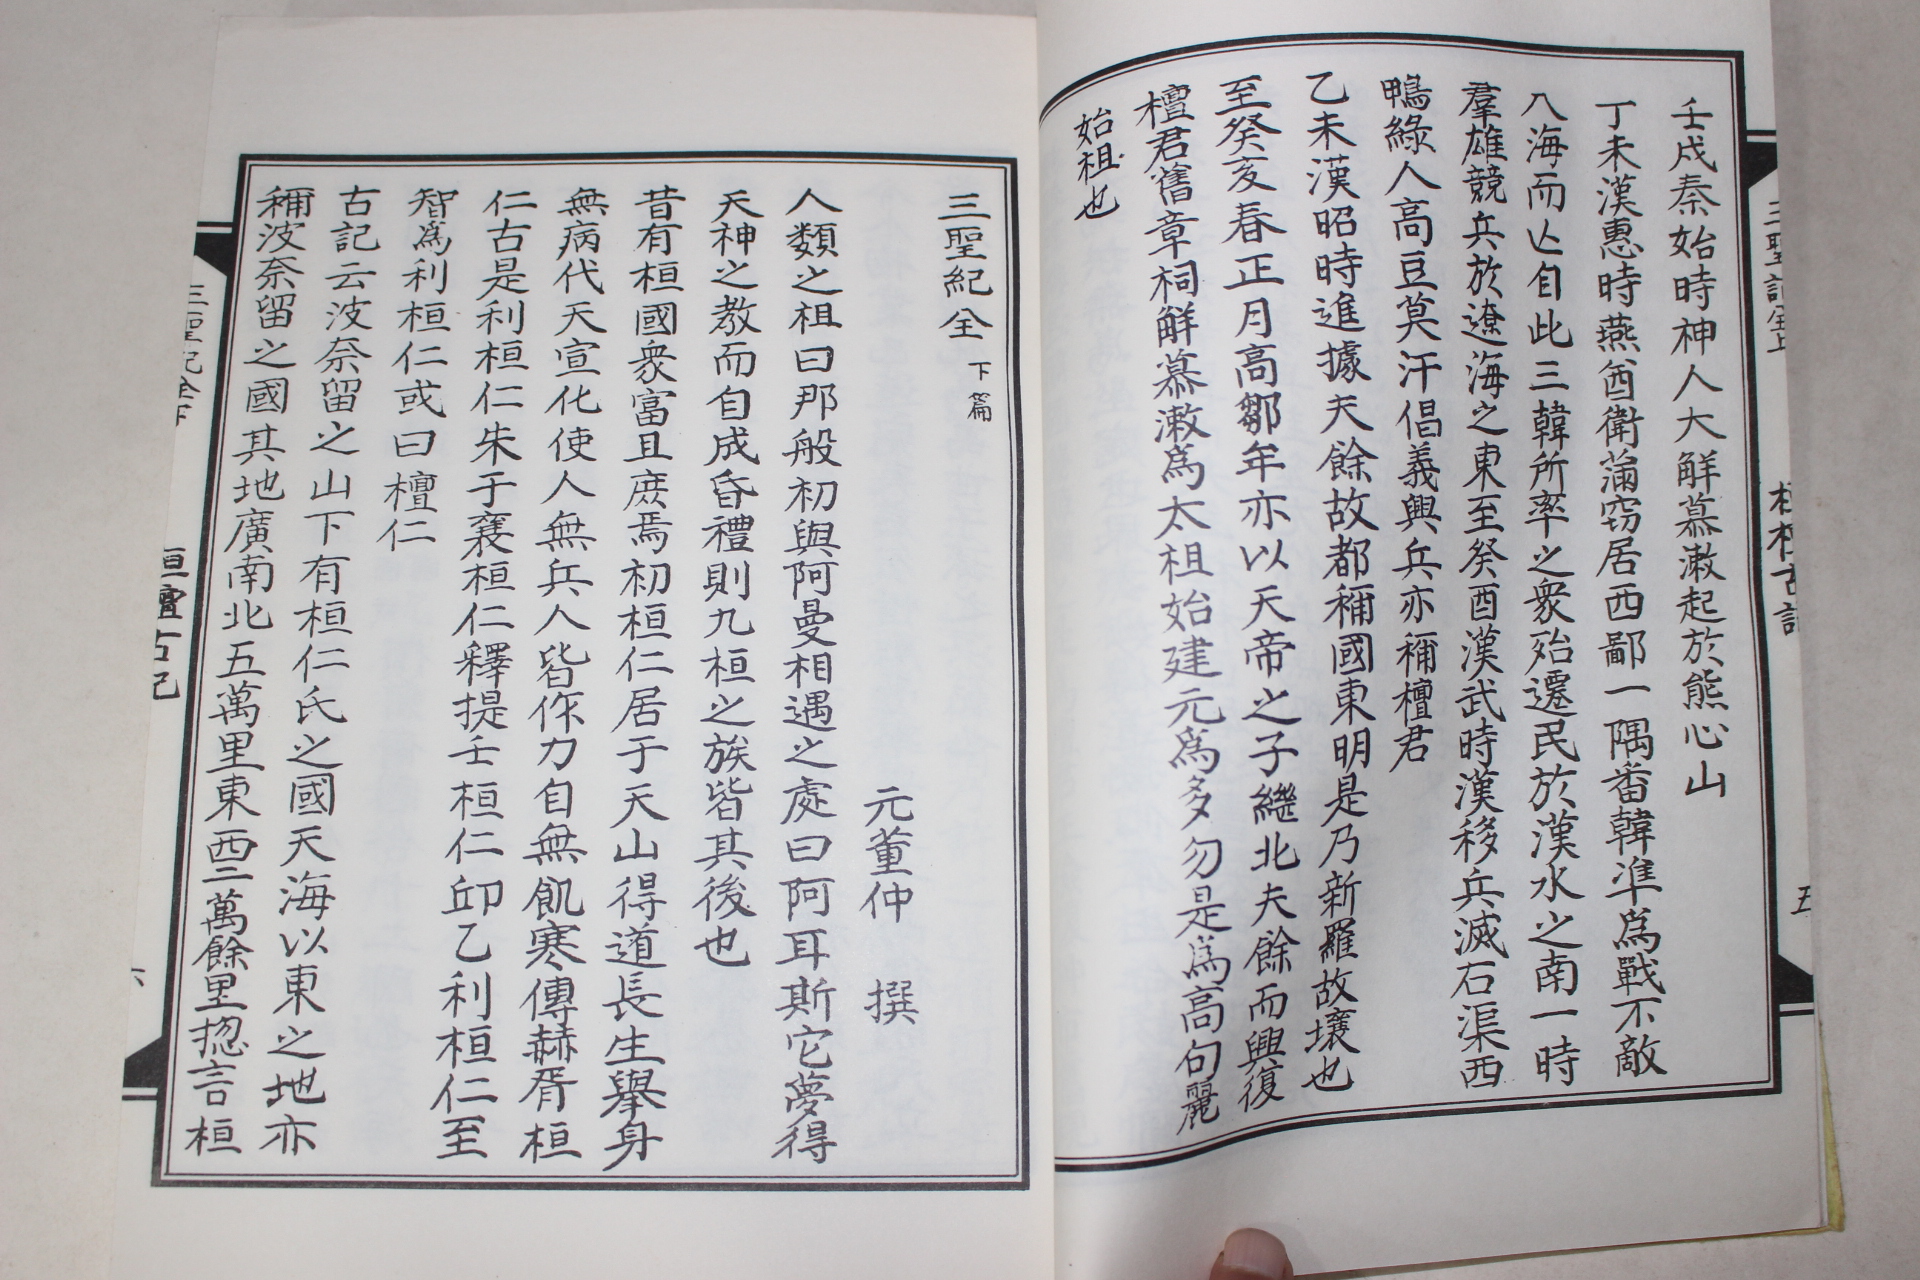 壬戌秦始時神人大解慕漱起於熊心山
丁未漢惠時燕酋衛滿窃居西鄙一隅番韓準爲戰不敵
入海而亡自此三韓所率之衆殆遷民於漢水之南一時
羣雄競兵於遼海之東至癸酉漢武時漢移兵滅右渠西
鴨綠人高豆莫汗倡義興兵亦稱檀君
乙未漢昭時進據夫餘故都稱國東明是乃新羅故壤也
至癸亥春正月高鄒牟亦以天帝之子繼北夫餘而興復
檀君舊章祠解慕漱爲太祖始建元爲多勿是爲高句麗
始祖也
三聖紀全 下篇
元董仲 撰
人類之祖曰那般初與阿曼相遇之處曰阿耳斯它夢得
天神之教而自成昏禮則九桓之族皆其後也
昔有桓國衆富且庶焉初桓仁居于天山得道長生擧身
無病代天宣化使人無兵人皆作力自無飢寒傳赫胥桓
仁古是利桓仁朱于襄桓仁釋提壬桓仁邱乙利桓仁至
智爲利桓仁或曰檀仁
古記云波奈留之山下有桓仁氏之國天海以東之地亦
稱波奈留之國其地廣南北五萬里東西二萬餘里揔言桓
三聖紀全下
桓檀古記
六